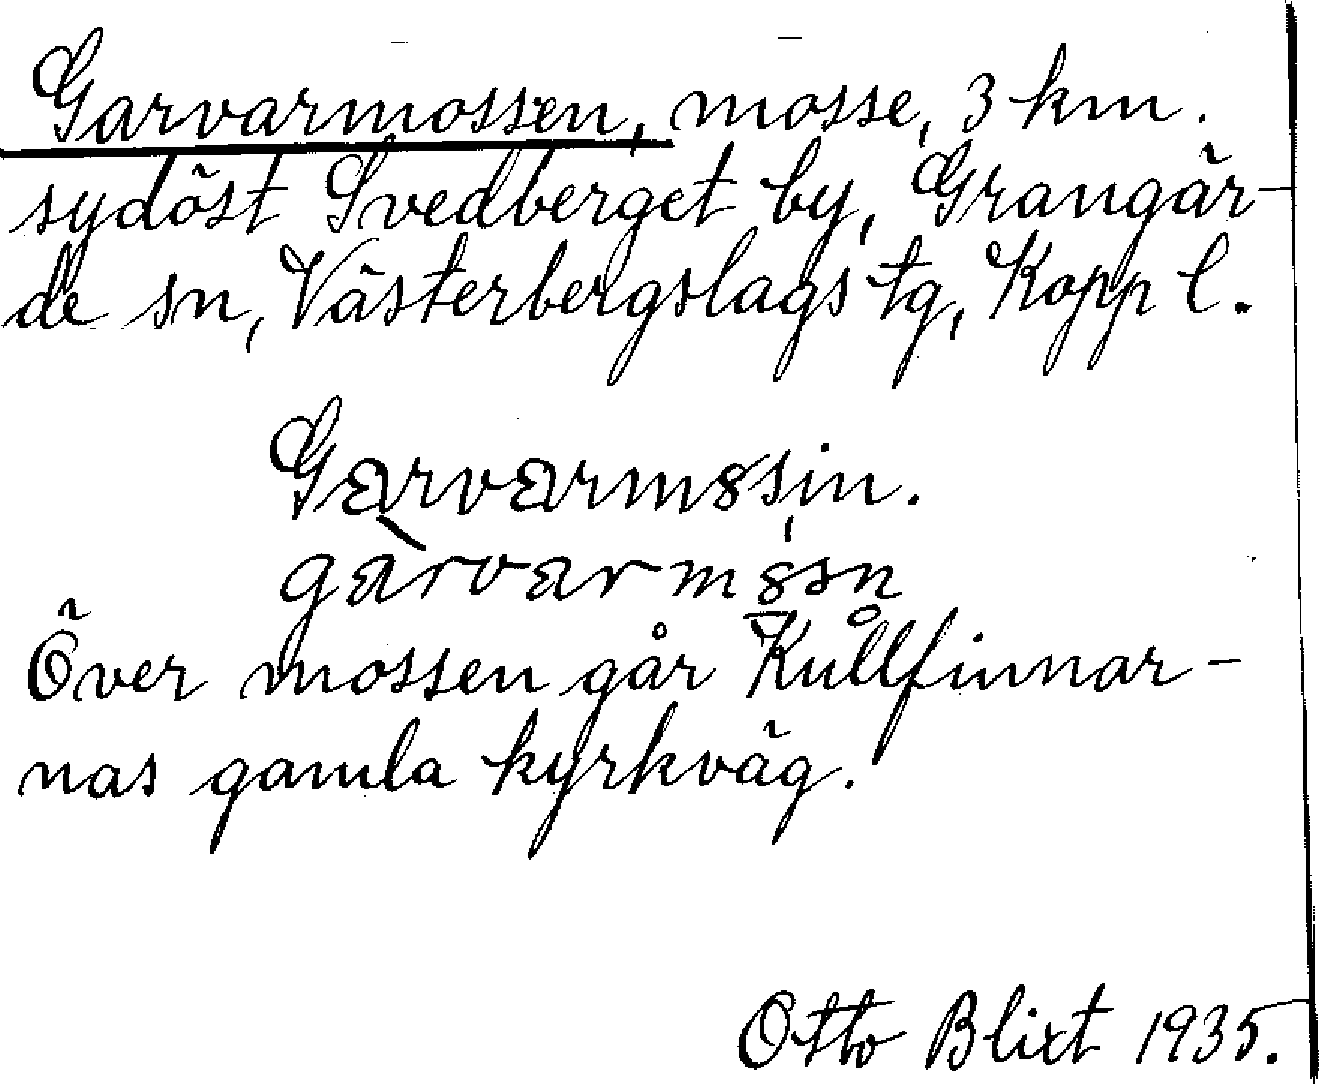 Garvarmossen, mosse, 3 km.
sydöst Svedberget by, Grangär-
de sn, Västerbergslags tg, Kopp l.
Garvarmosin.
garvarm
Över mossen går Kullfinnar-
nas gamla kyrkväg.
Otto Blixt 1935.